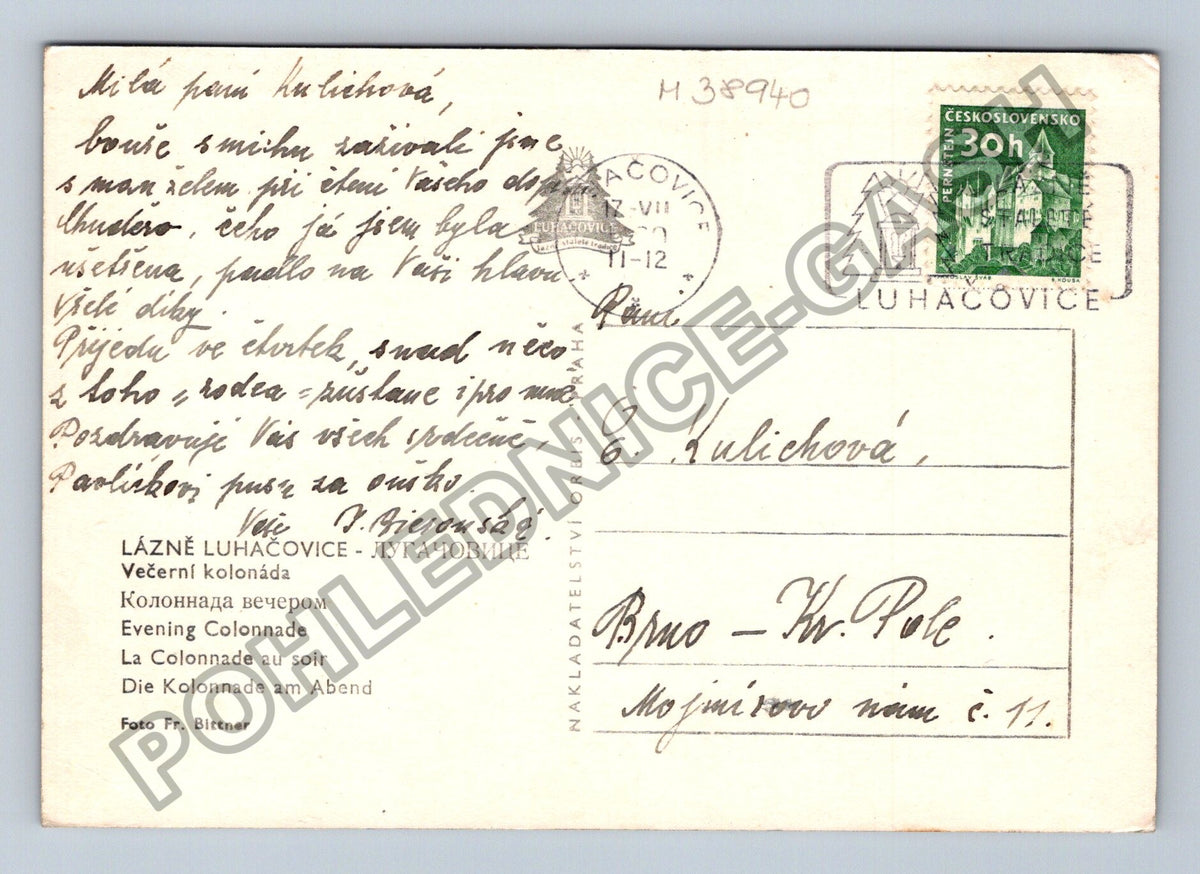 M 38940
Milá paní Kulichová,
bouře smíchu zažívali jsme
s manželem při čtení Vašeho dopisu
Všudero, čeho já jsem byla
ušetšena, padlo na Vaši hlavu
Vřelé díky.
Přijedu ve čtvrtek, snad něco
z toho „rodea" zůstane i pro mne
Pozdravuji Vás všech srdečně
Pavlíkovi pusu za ouško
Vaše
LÁZNĚ LUHAČOVICE - ЛУГАЧОВИЦЕ
Večerní kolonáda
Колоннада вечером
Evening Colonnade
La Colonnade au soir
Die Kolonnade am Abend
Foto Fr. Bittner
NAKLADATELSTVÍ ORBIS, PRAHA
ČESKOSLOVENSKO
30h
PERNŠTEJN
LUHAČOVICE
17.VII
11-12
LUHAČOVICE
lázně staleté tradice
LÁZNĚ
STALETÉ
TRADICE
LUHAČOVICE
Paní
G. Kulichová,
Brno – Kr. Pole.
Mojmírovo nám č. 11.
POHLEDNICE-GASH